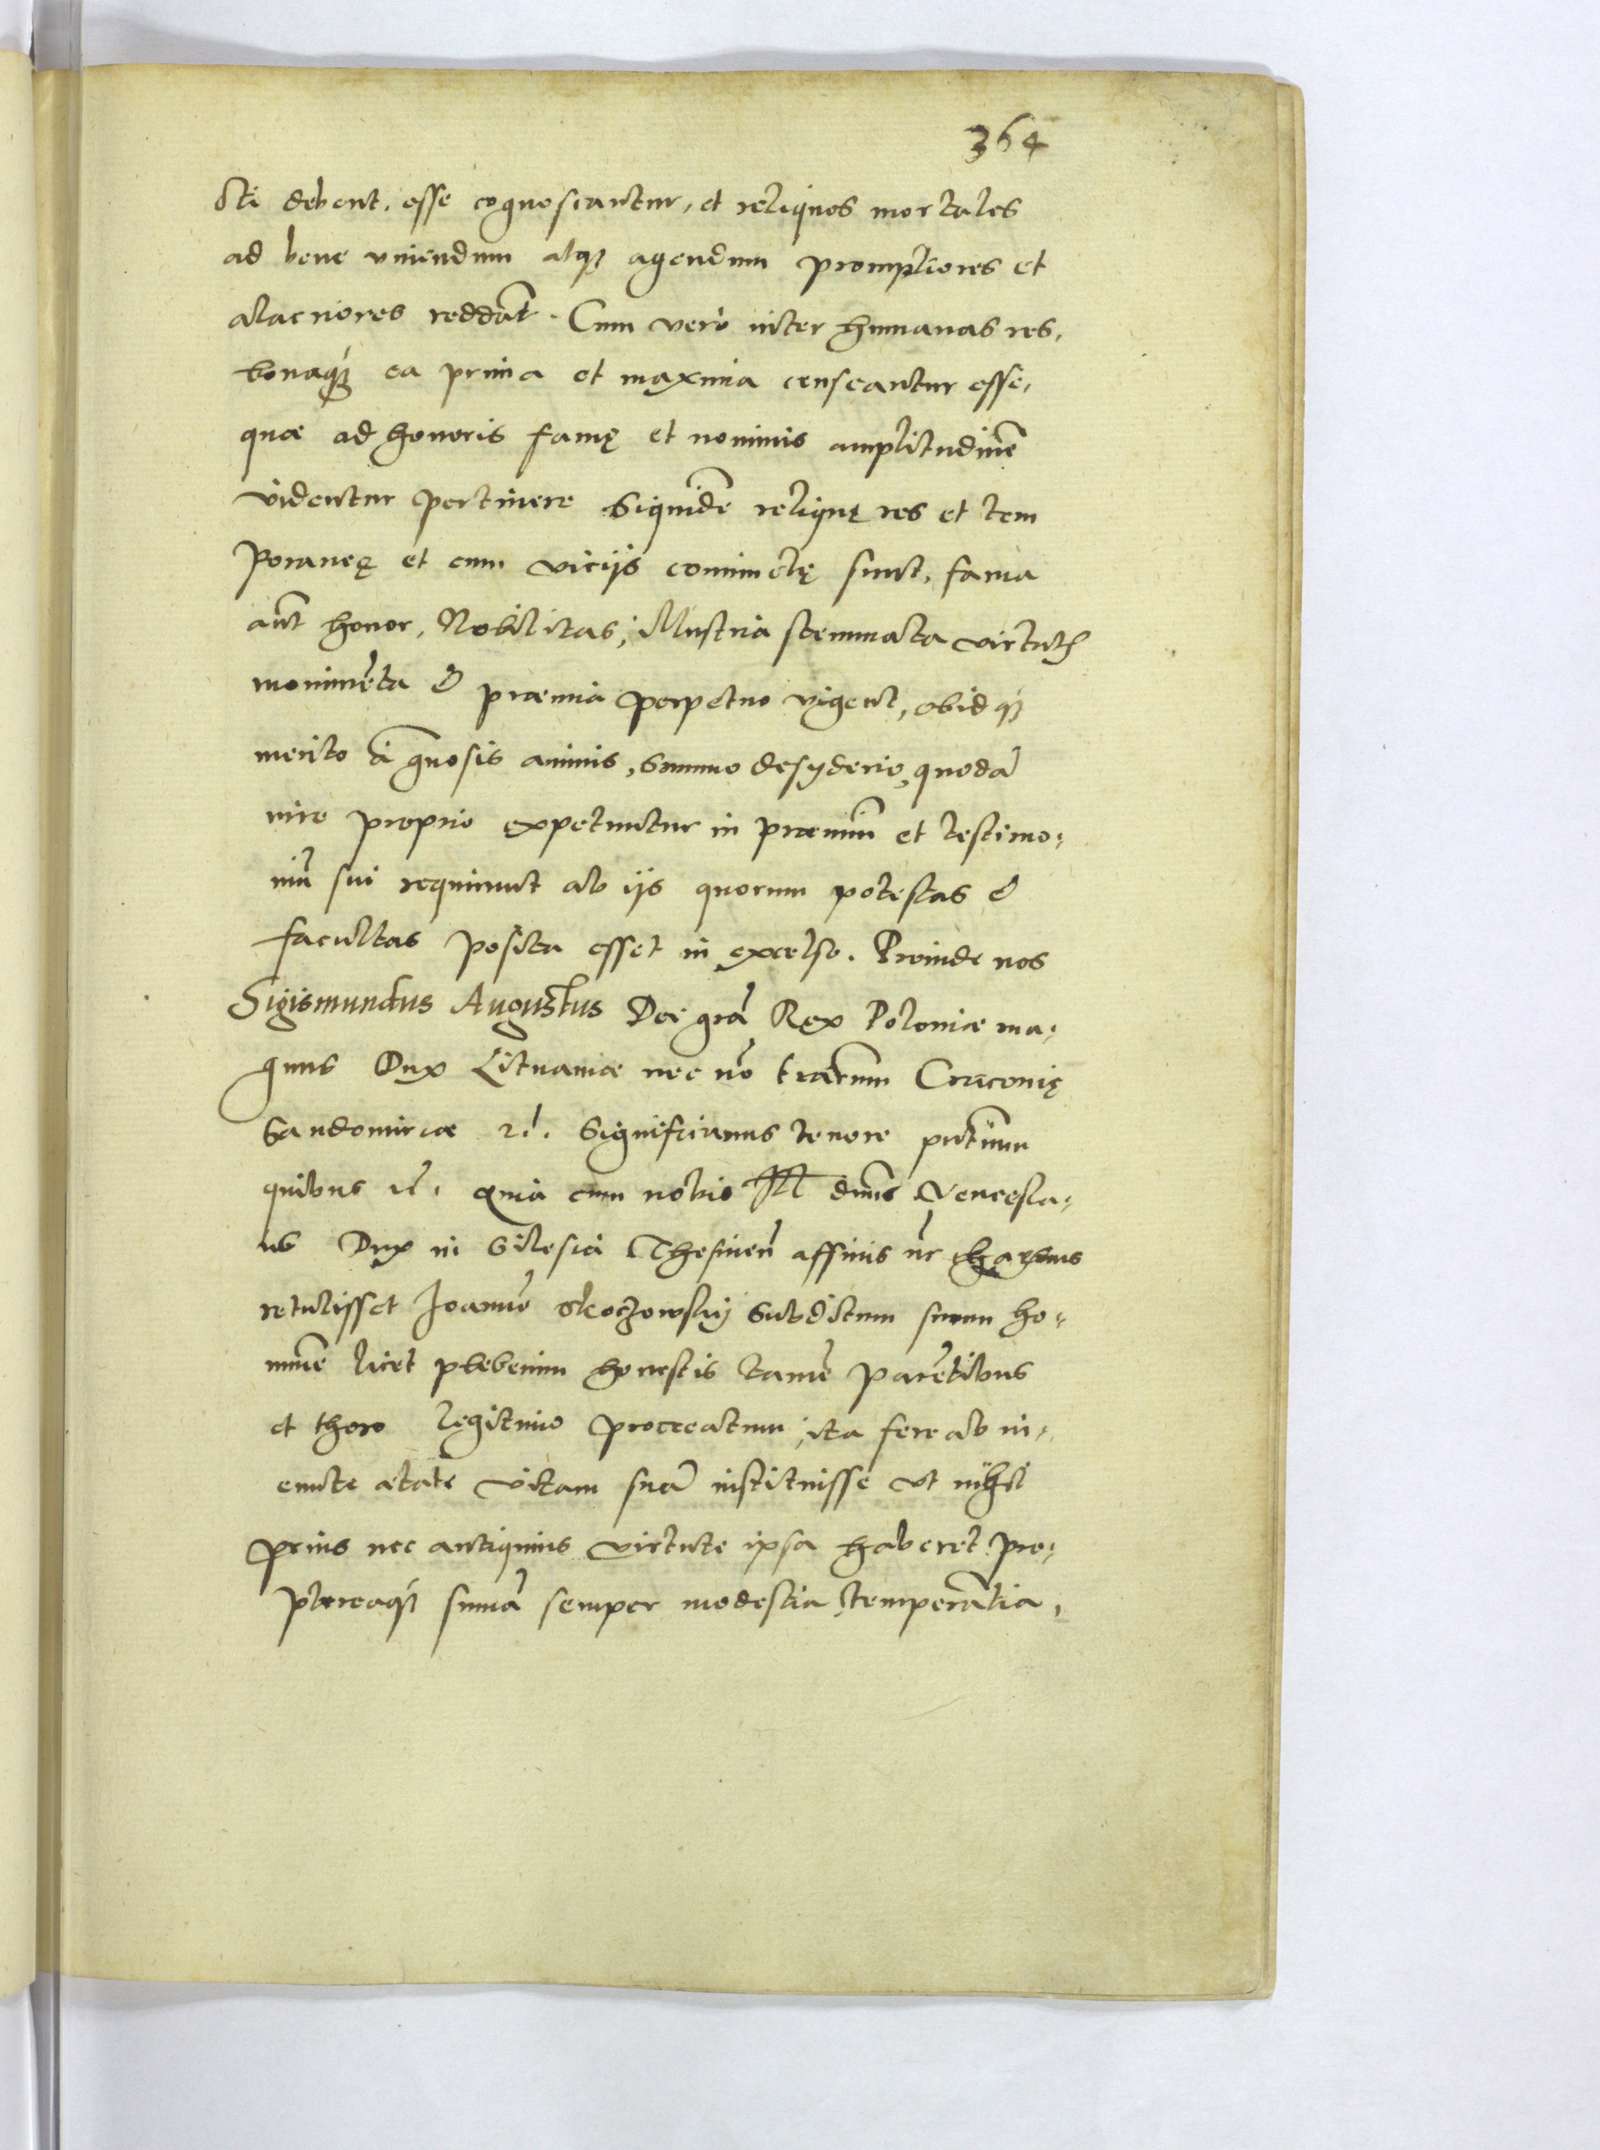 364
sti debent, esse cognoscantur, et reliquos mortales
ad bene viuendum atq; agendum promptiores et
alacriores reddāt. Cum vero inter humanas res,
bonaq; ea prima et maxima censeantur esse,
quæ ad honoris famę et nominis amplitudinē
videntur pertinere Siquidē reliquę res et tem
poraneę et cum vicijs coniunctę sunt, fama
aūt honor, Nobilitas, illustria stemmata virtutū
monimēta & præmia perpetuo vigent, obidq;
merito a gnosis animis, summo desyderio quodā
iure proprio expetuntur in præmiū et testimo-
niū sui requirunt ab ijs quorum potestas &
facultas posita esset in excelso. Proinde nos
Sigismundus Augustus Dei grā Rex Poloniæ ma-
gnus Dux Lituaniæ nec nō trārum Cracouię
Sandomiriæ zc. Significamus tenore pntium
quibus zc. quia cum nobis Ill dnūs Vencesla-
us Dux in Silesia Theschineñ affinis nr charmus
retulisset Joannē Skoczowsky subditum suum ho-
minē licet plebeium honestis tamē parētibus
et thoro legitimo procreatum, ita fere ab in-
eunte ætate vitam suā instituisse vt nihil
prius nec antiquius virtute ipsa haberet pro-
ptereaq; sumā semper modestia, temperātia,